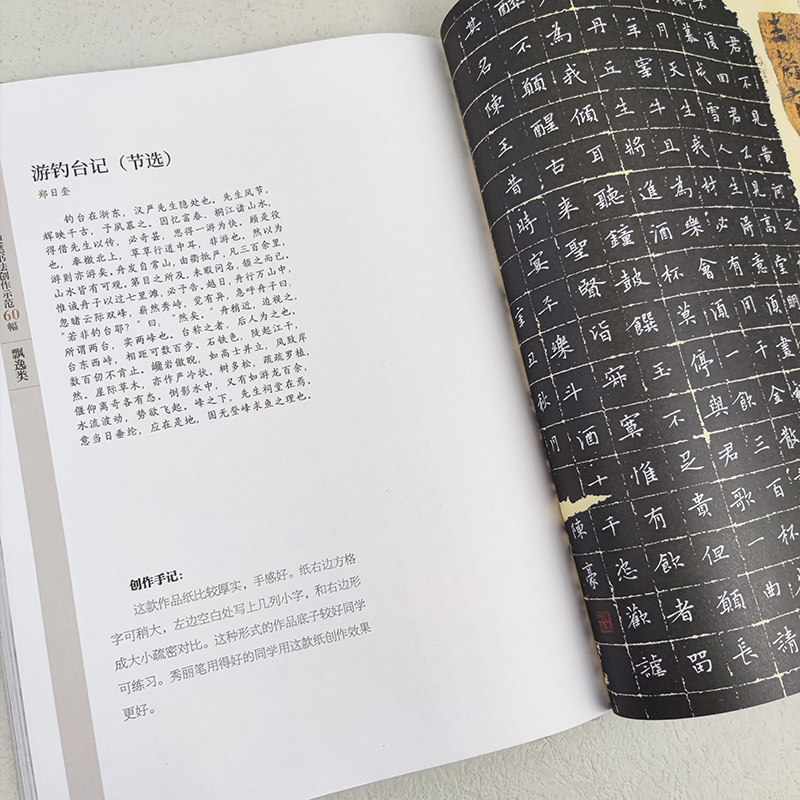 游钓台记（节选）
郑日奎
钓台在浙东，汉严先生隐处也。先生风节，
辉映千古，予夙慕之。因忆富春、桐江诸山水，
得借先生以传，必奇甚，思得一游为快。顾是役
也，奉檄北上，草草行道中耳，非游也。然以为
游则亦游矣。舟发自常山，由衢抵严，凡三百余里，
山水皆有可观。第目之所及，未暇问名，领之而已。
惟诫舟子以过七里滩，必予告。越日，舟行万山中，
忽睹云际双峰，崭然秀峙，觉有异，急呼舟子曰：
“若非钓台耶？”曰：“然矣。”舟稍近，迫视之，
所谓两台，实两峰也。台称之者，后人为之也。
台东西峙，相距可数百步。石铁色，陡起江干，
数百仞不肯止。巉岩傲睨，如高士并立，风致岸
然。崖际草木，亦作严冷状。树多松，疏疏罗植，
偃仰离奇各有态。倒影水中，又有如游龙百余，
水流波动，势欲飞起。峰之下，先生祠堂在焉。
意当日垂纶，应在是地，固无登峰求鱼之理也。
创作手记：
这款作品纸比较厚实，手感好。纸右边方格
字可稍大，左边空白处写上几列小字，和右边形
成大小疏密对比。这种形式的作品底子较好同学
可练习。秀丽笔用得好的同学用这款纸创作效果
更好。
书法创作示范60幅
飘逸类
君不見黃河
君不見高堂
丹丘生將進酒杯莫停與君歌一曲請
為我傾耳聽鐘鼓饌玉不足貴但願長
醉不願醒古來聖賢皆寂寞惟有飲者留
其名陳王昔時宴平樂斗酒十千恣歡謔